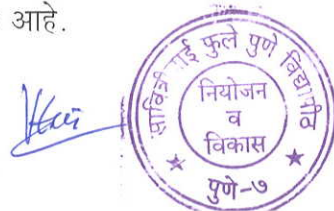 आहे.
सावित्रीबाई फुले पुणे विद्यापीठ
नियोजन
व
विकास
पुणे-७